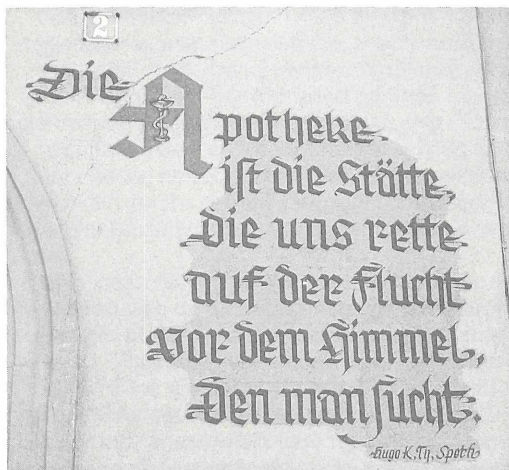 2
Die Apotheke
ist die Stätte,
die uns rette
auf der Flucht
vor dem Himmel,
den man sucht.
Hugo K, Tÿ, Speth